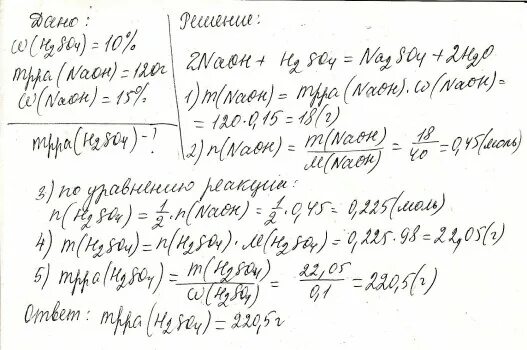 Дано:
ω(H₂SO₄)=10%
mрра(NaOH)=120г
ω(NaOH)=15%
mрра(H₂SO₄)-?
Решение:
2NaOH + H₂SO₄ = Na₂SO₄ + 2H₂O
1) m(NaOH) = mрра(NaOH)·ω(NaOH)=
= 120·0,15 = 18(г)
2) n(NaOH) = m(NaOH)/M(NaOH) = 18/40 = 0,45(моль)
3) по уравнению реакции:
n(H₂SO₄) = 1/2·n(NaOH) = 1/2·0,45 = 0,225(моль)
4) m(H₂SO₄) = n(H₂SO₄)·M(H₂SO₄) = 0,225·98 = 22,05(г)
5) mрра(H₂SO₄) = m(H₂SO₄)/ω(H₂SO₄) = 22,05/0,1 = 220,5(г)
Ответ: mрра(H₂SO₄) = 220,5г